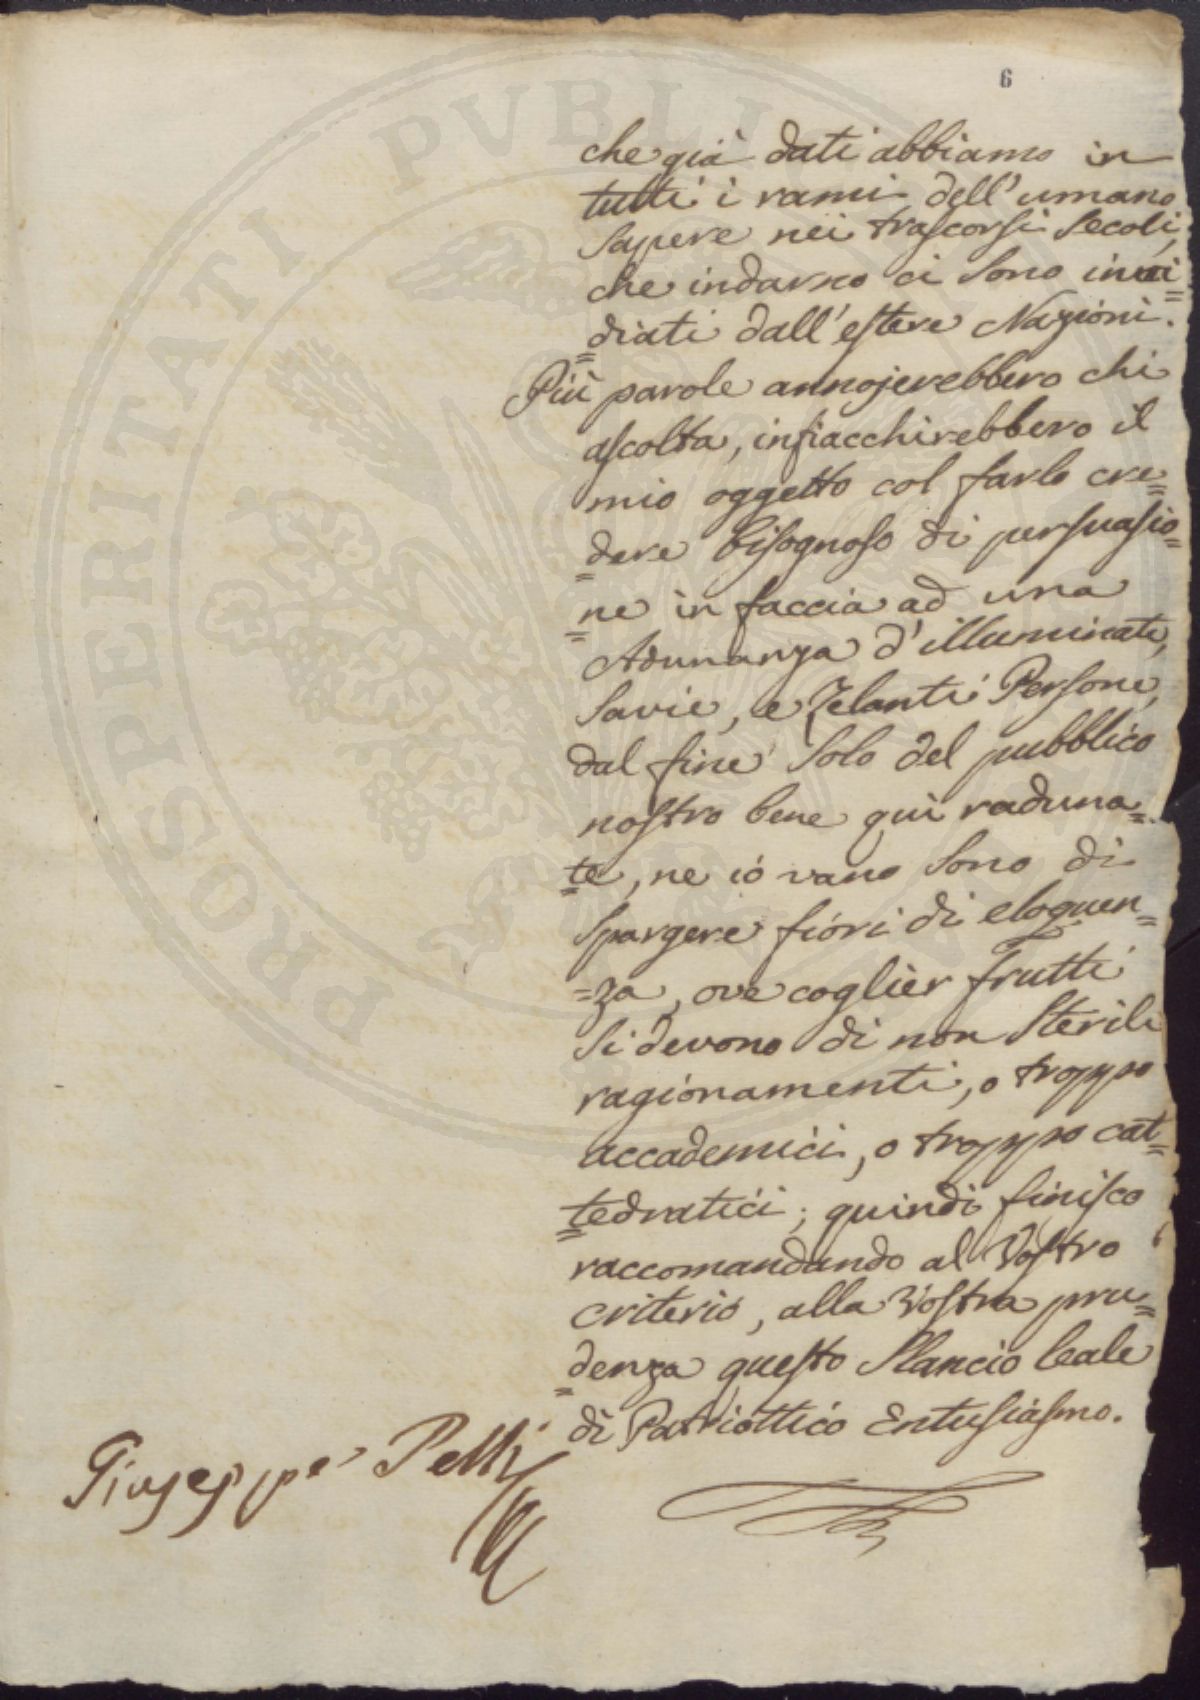 6
che già dati abbiamo in
tutti i rami dell'umano
sapere nei trascorsi secoli,
che indarno ci sono invi=
=diati dall'estere Nazioni.
Più parole annojerebbero chi
ascolta, infiacchirebbero il
mio oggetto col farlo cre=
=dere bisognoso di persuasio=
=ne in faccia ad una
Adunanza d'illuminate,
savie, e zelanti Persone,
dal fine solo del pubblico
nostro bene quì raduna=
=te, ne io vano sono di
spargere fiori di eloquen=
=za, ove coglier frutti
si devono di non sterili
ragionamenti, o troppo
accademici, o troppo cat=
=tedratici; quindi finisco
raccomandando al Vostro
criterio, alla Vostra pru=
=denza questo slancio leale
di Patriottico Entusiasmo.
Giuseppe Pelli
PROSPERITATI PVBLIC